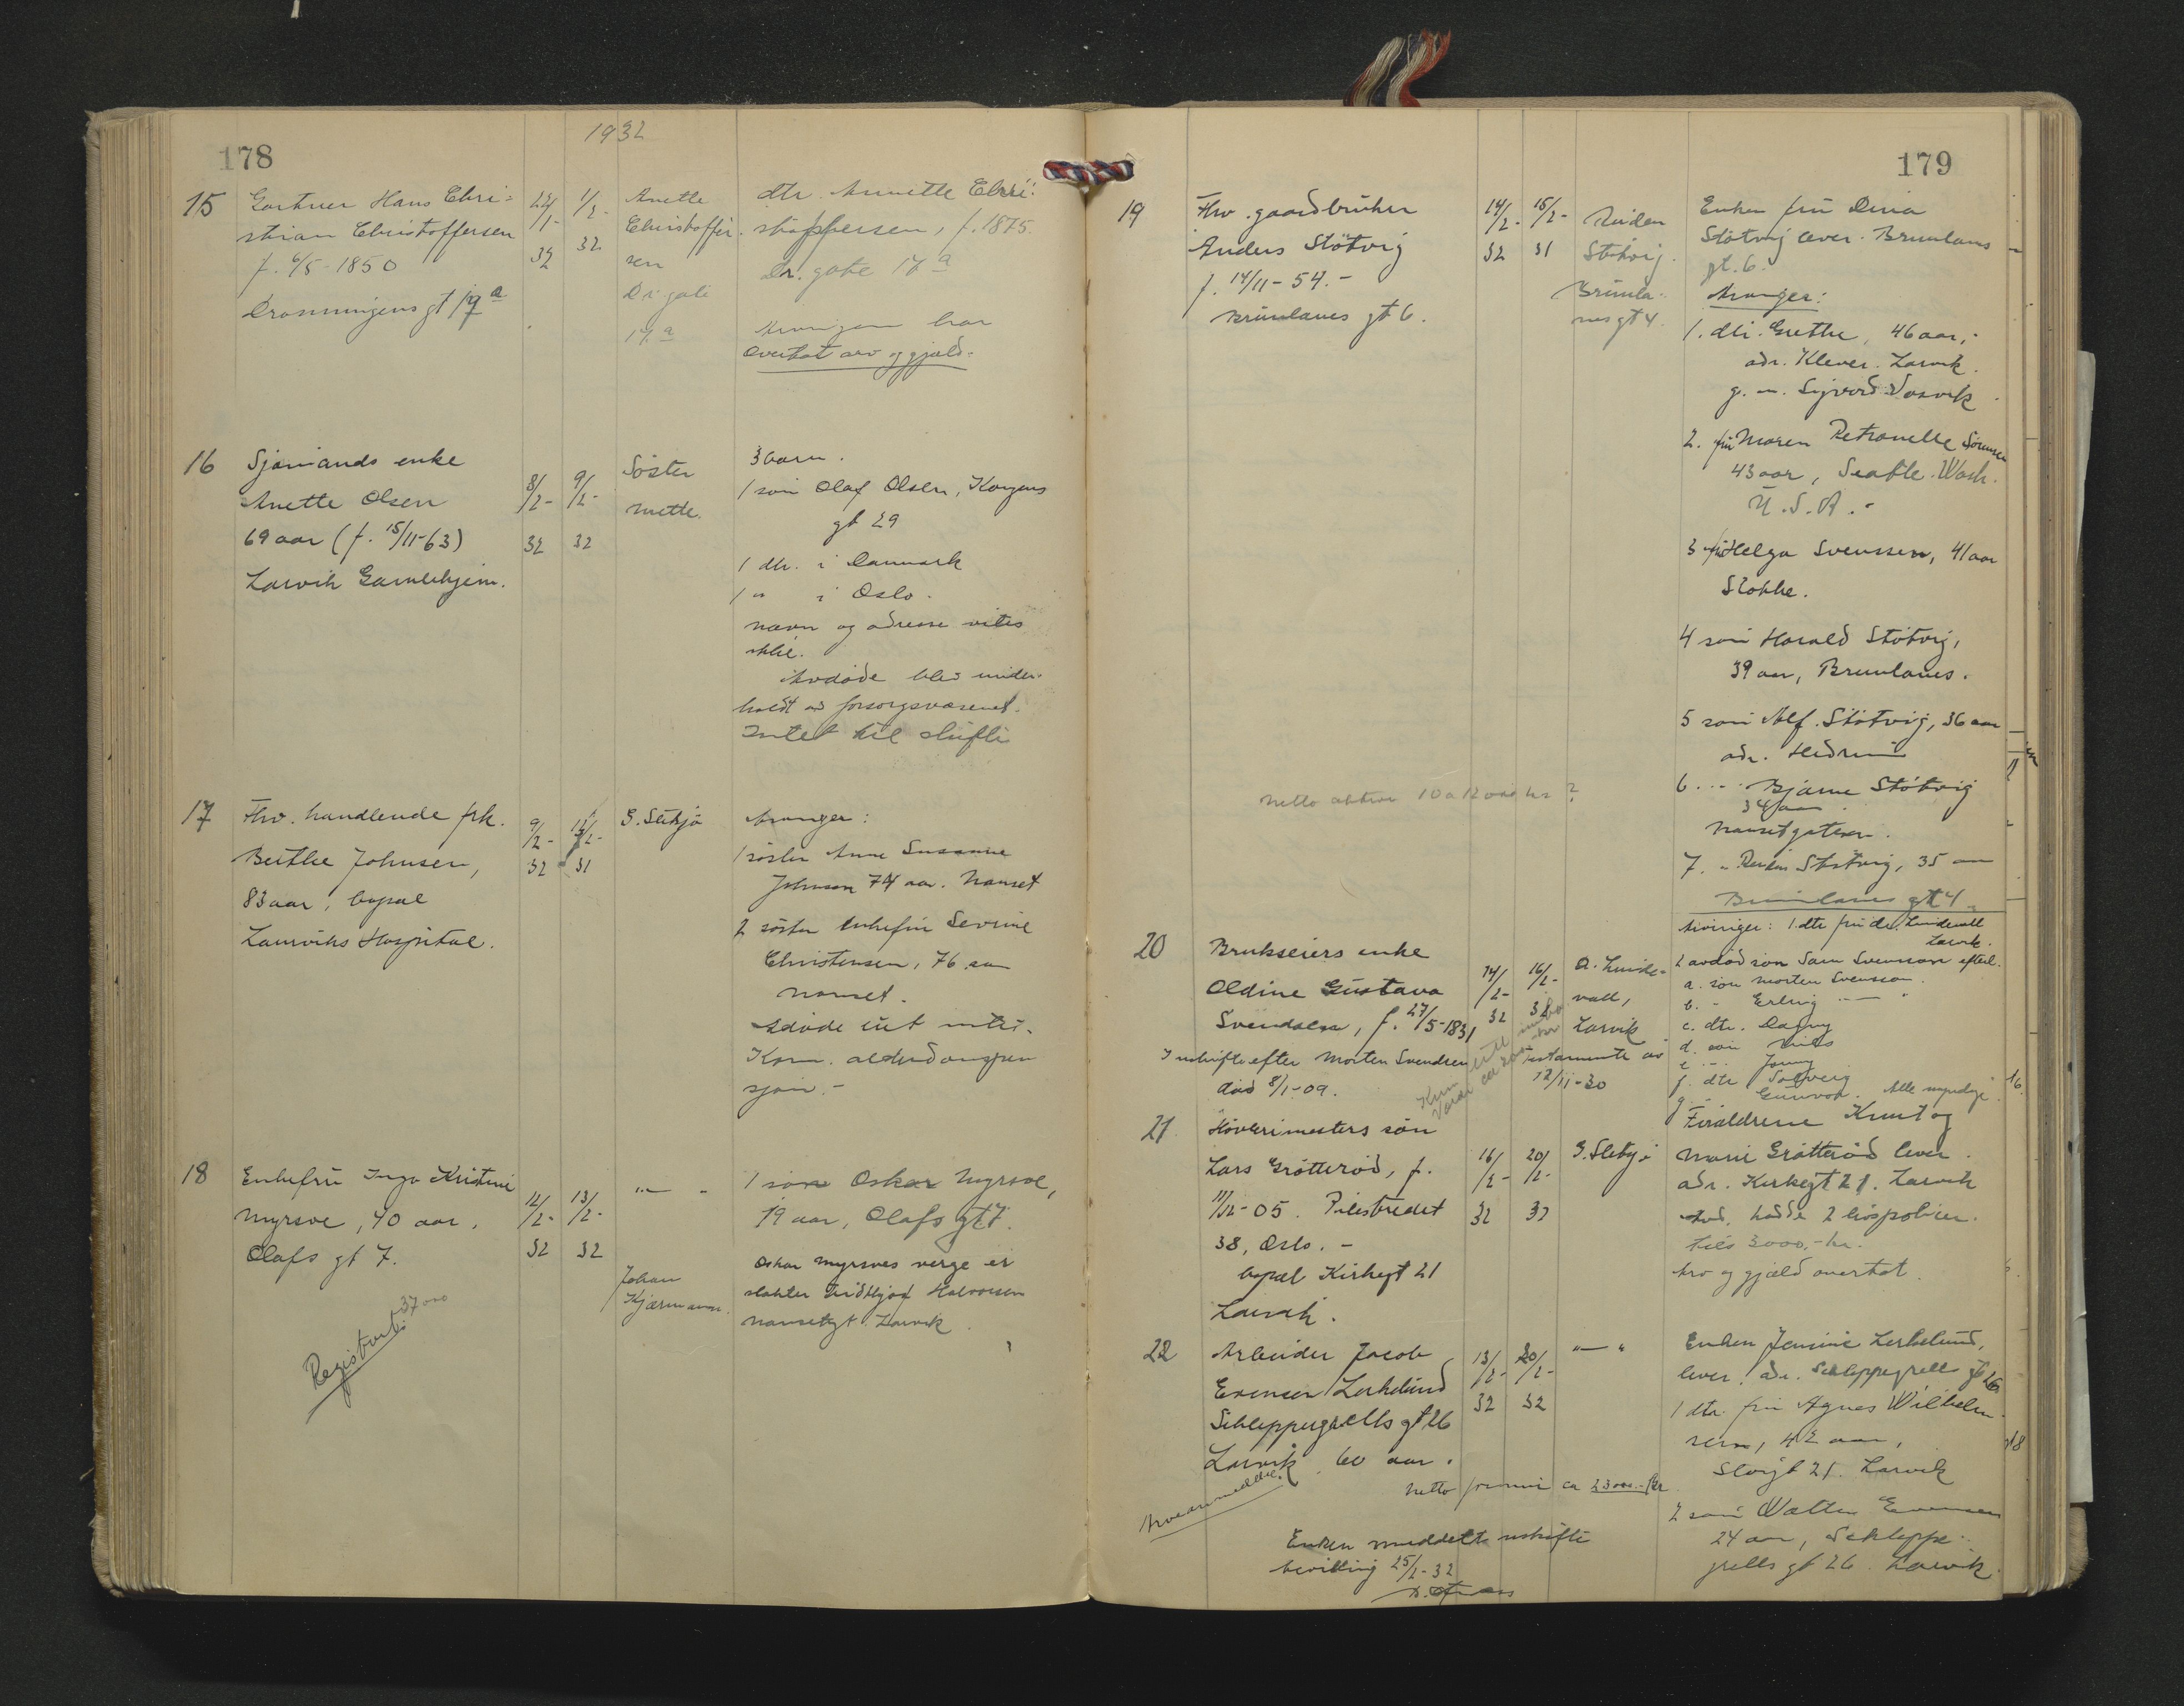 178
1932
15
Gartner Hans Chri=
stian Christoffersen
f. 6/5-1850
Dronningens gt 17a
1/2-
32
Anette
Christoffer-
sen
Dr. gate
17a
dtr. Annette Chri=
stoffersen, f. 1875.
Dr. gate 17a
Arvingen har
overtat arv og gjæld.
16
Sjømands enke
Anette Olsen
69 aar (f. 15/11-63)
Larvik Gamlehjem.
8/2-
32
9/2-
32
Søster
Mette.
3 barn.
1 søn Olaf Olsen, Kongens
gt 29
1 dtr. i Danmark
1 " i Oslo.
navn og adresse vites
ikke.
Avdøde blev under-
holdt av forsorgsvæsenet.
Intet til skifte
17
Fhv. handlende frk.
Berthe Johnsen,
83 aar, bopæl
Laurviks Hospital.
9/2-
32
31
G. Sletsjø
Arvinger:
1 søster Anne Susanne
Johnsen 74 aar. Nanset
2 søster enkefru Severine
Christensen, 76 aar
Nanset.
Kom. alderdomspen
sjon.-
18
Enkefru Inga Kristine
Myrsve, 40 aar,
Olafs gt 7.
12/2-
32
13/2-
32
" — "
Johan
Kjærmann.
1 søn Oskar Myrsve,
19 aar, Olafs gt 7.
Oskar Myrsves verge er
slakter Fridtjof Halvorsen
Nansetgt. Larvik
Registrert:
37000
179
19
Fhv. gaardbruker
Anders Støtvig
f. 14/11-54.-
Brunlanes gt 6.
14/2-
32
15/2-
31
Støtvig.
Brunla-
nes gt 4.
Enken fru Dina
Støtvig lever. Brunlanes
gt. 6.
Arvinger:
1. dtr. Grethe, 46 aar,
adr. Klever. Larvik.
g. m. Sigvard Vasvik
2. fru Maren Petronelle Sørensen
43 aar, Seattle. Wash.
U.S.A.-
3 fru Helga Svenssen, 41 aar
Stokke.
4 søn Harald Støtvig,
39 aar, Brunlanes.
5 søn Alf. Støtvig, 36 aar
adr. Hedrum
6 .... Bjarne Støtvig
34 aar
Nansetgaten.
7. " Støtvig, 35 aar
Brunlanes gt 4.
Netto aktiva 10 a 12000 kr ?
20
Brukseiers enke
Oldine Gustava
Svendsen, f. 27/5-1831
I uskifte efter Morten Svendsen
død 8/1-09.
14/2-
32
16/2-
32
A. Linde-
vall,
Larvik
Testamente av
12/11-30
Arvinger: 1. dtr fru Lindevall
Larvik.
2 avdød søn Sam Svensson efterl.
a. søn Morten Svensson.
b. - Erling — "
c. dtr. Dagny
d. søn Nils
e. - Jonny
f. dtr Solveig
g. - Gunvor. Alle myndige.
21
Høvlerimesters søn
Lars Grøtterød, f.
11/12-05. Pilestredet
38, Oslo.-
bopæl Kirkegt 21
Larvik.
16/2-
32
20/2-
32
G. Sletsjø
Forældrene Knut og
Marie Grøtterød lever.
adr. Kirkegt 21. Larvik
Avd. hadde 2 livspoliser.
tils 3000,- kr.
Arv og gjæld overtat.
22
Arbeider Jacob
Evensen Lerkelund
Schleppegrells gt 26
Larvik, 60 aar.
13/2-
32
20/2-
32
" — "
Enken Jensine Lerkelund,
lever. adr. Schleppegrells gt 26
1 dtr. fru Agnes Wilhelm-
sen, 42 aar,
Storgt 21. Larvik
2 søn Walter Evensen
24 aar, Schleppe-
grells gt 26. Larvik.
Netto formue ca 23000.- kr
Arveanmeldt.
Enken meddelt uskifte
bevilling 25/2-32
16
18